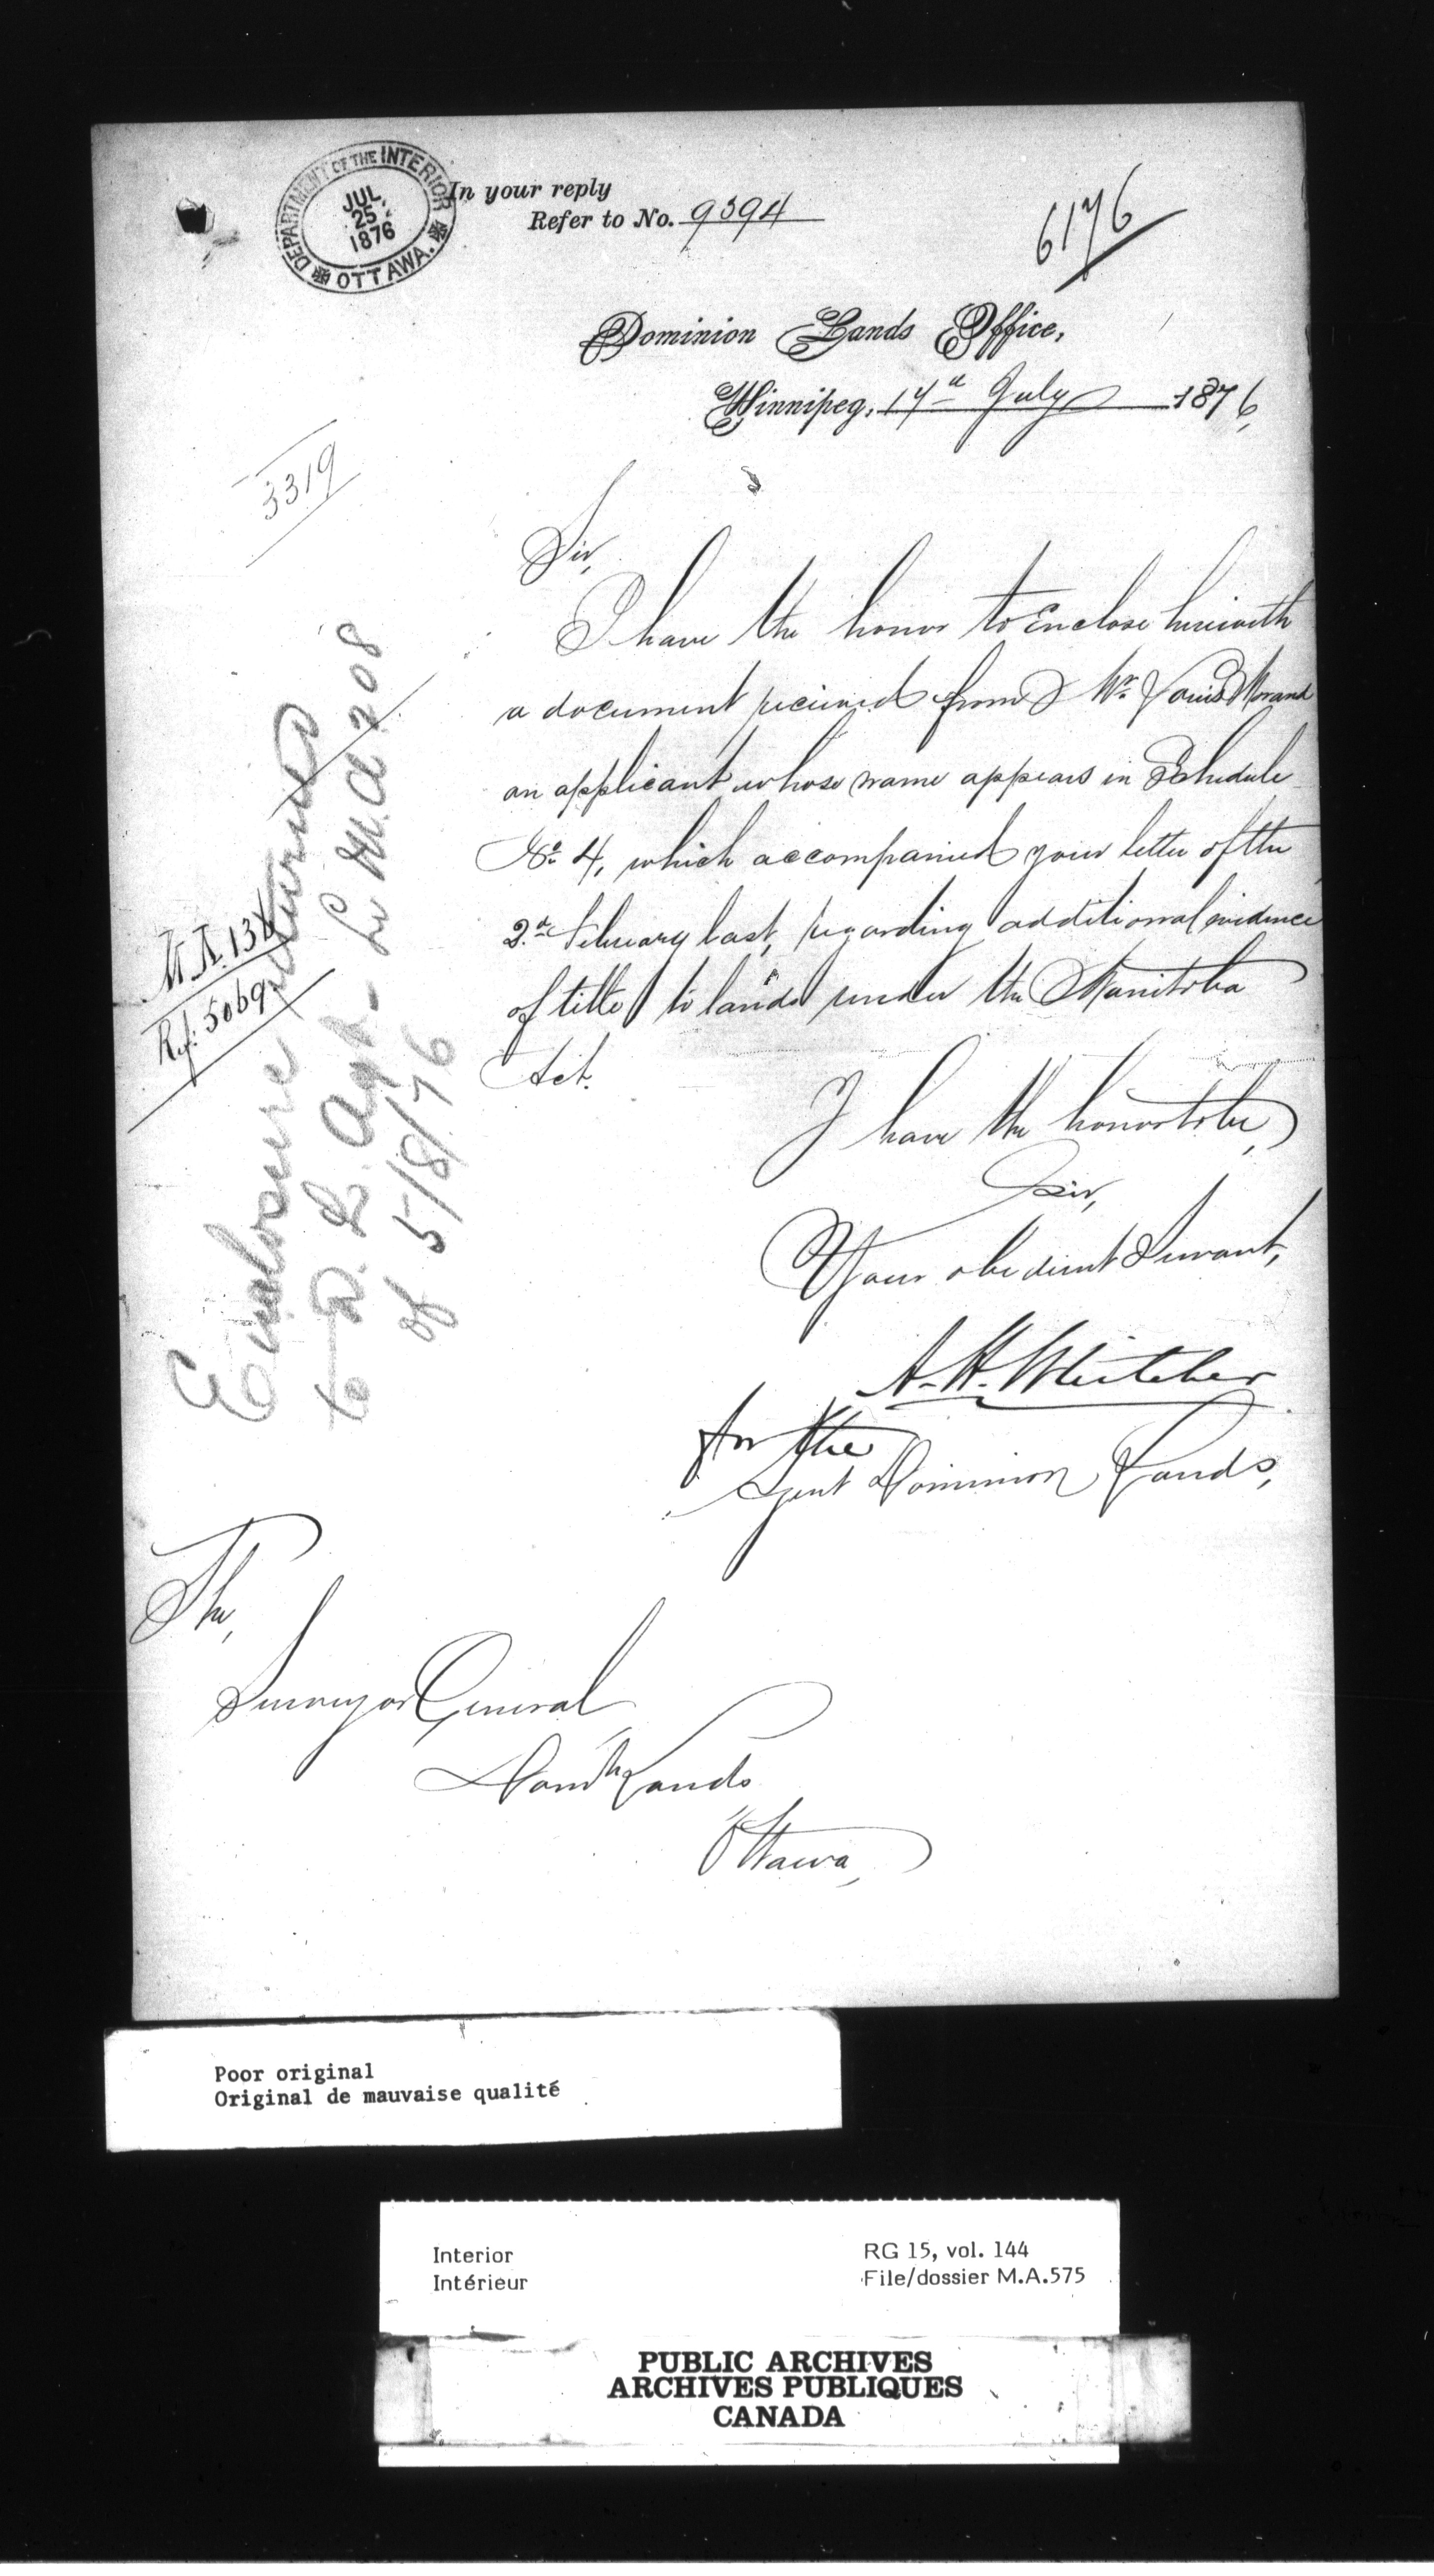 DEPARTMENT OF THE INTERIOR
JUL. 25 1876
OTTAWA.
In your reply
Refer to No. 9394
6176
Dominion Lands Office,
Winnipeg, 17th July 1876,
3319
Sir,
I have the honor to Enclose herewith
a document received from Mr. Louis Morand
an applicant whose name appears in Schedule
No. 4, which accompanied your letter of the
2d. February last, regarding additional evidence
of title to lands under the Manitoba
Act.
I have the honor to be,
Sir,
Your obedient Servant,
A. H. Whitcher
for the
Agent Dominion Lands,
M.A. 138
Ref: 5069
Enclosure returned
to D. L. Agt. in M.A. 208
of 5/8/76
The,
Surveyor General
Domn Lands
Ottawa,
Poor original
Original de mauvaise qualité
Interior
Intérieur
RG 15, vol. 144
File/dossier M.A.575
PUBLIC ARCHIVES
ARCHIVES PUBLIQUES
CANADA